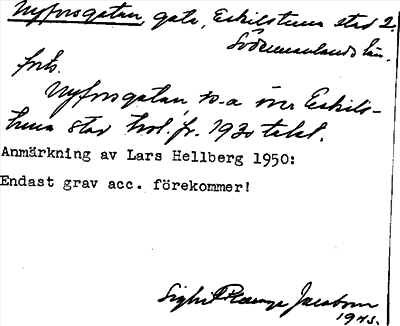 Nyforsgatan, gata, Eskilstuna stad 2.
Södermanlands län.
frts.
Nyforsgatan, ö.a över Eskils-
tuna stad trol. fr. 1930 talet.
Anmärkning av Lars Hellberg 1950:
Endast grav acc. förekommer!
Sighit Jacobson
1943.